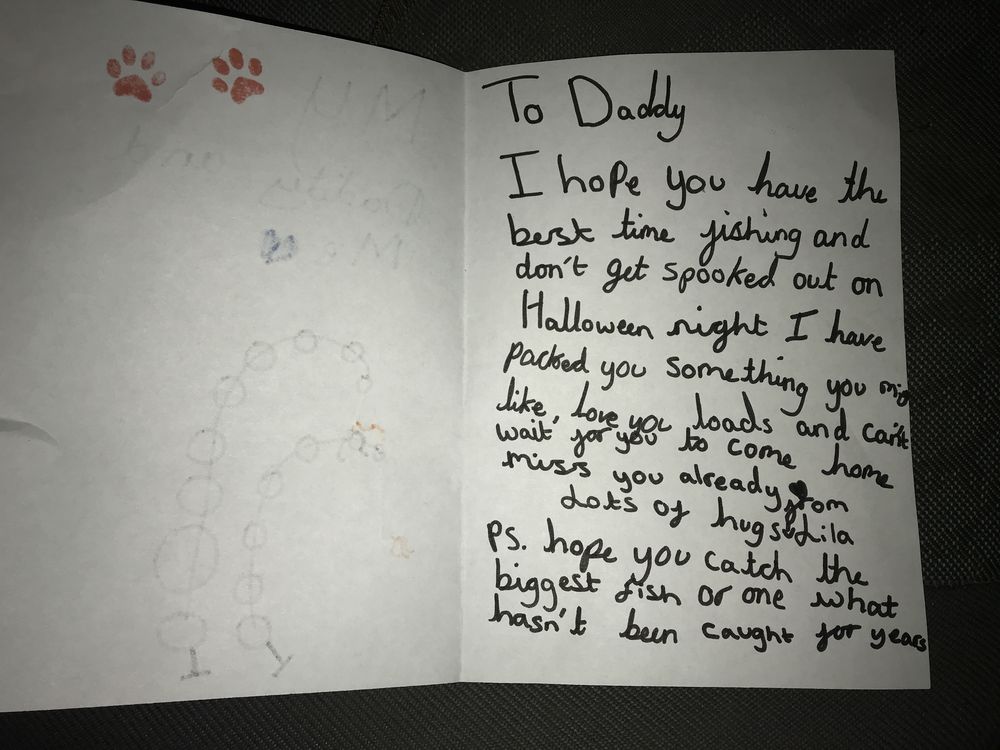 To Daddy
I hope you have the
berst time fishing and
don't get spooked out on
Halloween night I have
packed you something you
like, love you loads and can't
wait for you to come home
miss you already from
Lots of hugs Lila
PS. hope you catch the
biggest fish or one what
hasn't been caught for years